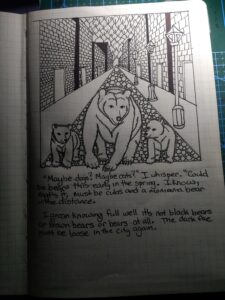 "Maybe dogs? Maybe cats?" I whisper. "Could
be bears this early in the spring. I know,
that's it, must be cubs and a momma bear
in the distance.
I groan knowing full well it's not black bears
or brown bears or bears at all. The dark fae
must be loose in the city again.